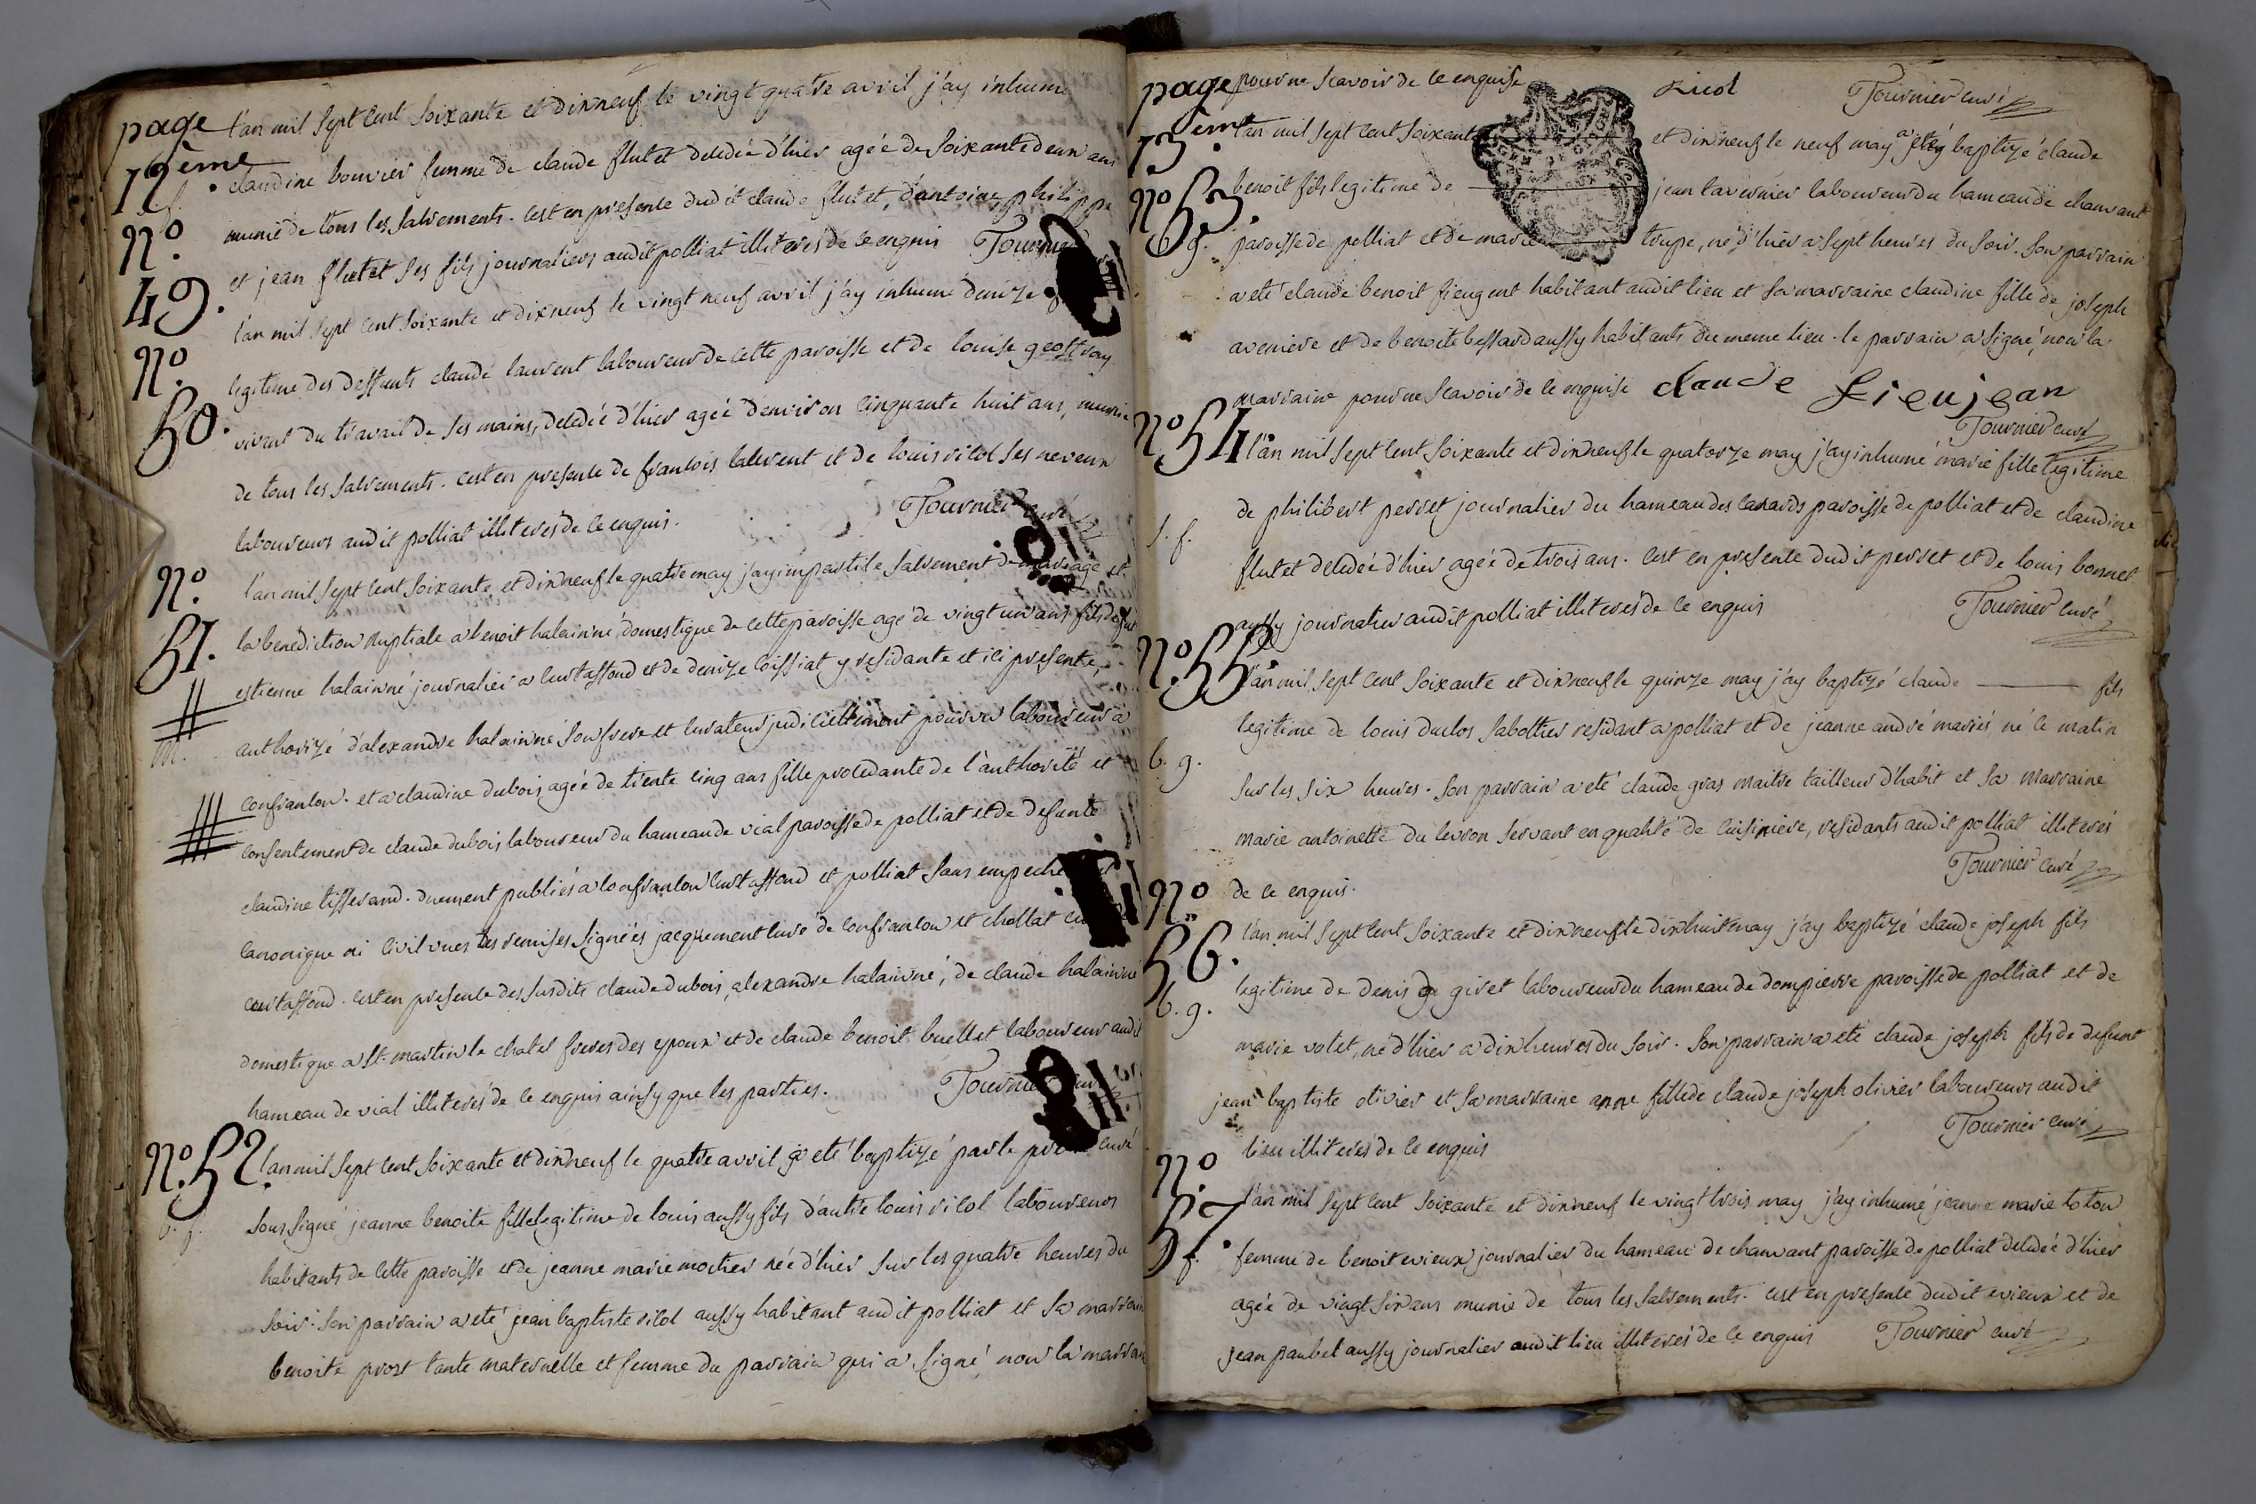 page 12ème
l'an mil sept cent soixante et dixneuf le vingt quatre avril j'ay inhumé
claudine bouvier femme de claude flutet decedée d'hier agée de soixante deux ans
munie de tous les sacrements. c'est en presence dudit claude flutet, d'antoine, philippe
et jean flutet ses fils journaliers audit polliat illiterés de ce enquis Tournier
No. 49.
l'an mil sept cent soixante et dixneuf le vingt neuf avril j'ay inhumé denize
legitime des deffunts claude laurent laboureur de cette paroisse et de louise geoffray
vivant du travail de ses mains, decedée d'hier agée d'environ cinquante huit ans, munie
de tous les sacrements. c'est en presence de francois laurent et de louis ricol ses neveux
laboureurs audit polliat illiterés de ce enquis. Tournier curé
No. 50.
l'an mil sept cent soixante et dixneuf le quatre may j'ay imparti le sacrement de mariage et
la benediction nuptiale a benoit halainné domestique de cette paroisse agé de vingt un ans fils de
estienne halainné journalier a curtaffond et de denize loissiat y residante et ici presente,
authorizé d'alexandre halainné son frere et curateur judiciellement pourvu laboureur a
confrancon. et a claudine dubois agée de trente cinq ans fille procedante de l'authorité et
consentement de claude dubois laboureur du hameau de vial paroisse de polliat et de defunte
claudine tisserand. duement publiés a confrancon curtaffond et polliat sans empeche
canonique ni civil vues les remises signées jacquement curé de confrancon et chollat
curtaffond. c'est en presence des susdits claude dubois, alexandre halainné, de claude halainné
domestique a st. martin le chatel freres des epoux et de claude benoit buellet laboureur audit
hameau de vial illiterés de ce enquis ainsy que les parties. Tournier curé
No. 51.
m.
No. 52.
l'an mil sept cent soixante et dixneuf le quatre avril a eté baptizé par le curé
soussigné jeanne benoite fille legitime de louis aussy fils d'autre louis ricol laboureurs
habitants de cette paroisse et de jeanne marie mortier née d'hier sur les quatre heures du
soir. son parrain a eté jean baptiste ricol aussy habitant audit polliat et sa marraine
benoite prost tante maternelle et femme du parrain qui a signé, non la marraine
page 13.ème
pour ne scavoir de ce enquise Ricol Tournier curé
No 53.
b. g.
l'an mil sept cent soixante et dixneuf le neuf may a eté baptizé claude
benoit fils legitime de jean lavernier laboureur du hameau de chanvant
paroisse de polliat et de marie trupe, né d'hier a sept heures du soir. son parrain
a eté claude benoit fieugent habitant audit lieu et sa marraine claudine fille de joseph
aveniere et de benoite bessard aussy habitants du meme lieu. le parrain a signé, non la
marraine pour ne scavoir de ce enquise claude fieujean
Tournier curé
No 54.
l'an mil sept cent soixante et dixneuf le quatorze may j'ay inhumé marie fille legitime
de philibert perret journalier du hameau des canards paroisse de polliat et de claudine
s. f.
flutet decedée d'hier agée de trois ans. c'est en presence dudit perret et de louis bonnet
aussy journalier audit polliat illiterés de ce enquis Tournier curé
No. 55.
l'an mil sept cent soixante et dixneuf le quinze may j'ay baptizé claude fils
legitime de louis duclos sabottier residant a polliat et de jeanne andré mariés, né ce matin
b. g.
sur les six heures. son parrain a eté claude gras maitre tailleur d'habit et sa marraine
marie antoinette du levron servant en qualité de cuisiniere, residants audit polliat illiterés
de ce enquis. Tournier curé
No 56.
b. g.
l'an mil sept cent soixante et dixneuf le dixhuit may j'ay baptizé claude joseph fils
legitime de denis giret laboureur du hameau de dompierre paroisse de polliat et de
marie volet, né d'hier a dix heures du soir. son parrain a eté claude joseph fils de defunt
jean baptiste olivier et sa marraine anne fille de claude joseph olivier laboureurs audit
lieu illiterés de ce enquis Tournier curé
No. 57.
l'an mil sept cent soixante et dixneuf le vingt trois may j'ay inhumé jeanne marie toton
f.
femme de benoit evieux journalier du hameau de chanvant paroisse de polliat decedée d'hier
agée de vingt six ans munie de tous les sacrements. c'est en presence dudit evieux et de
jean paubel aussy journalier audit lieu illiterés de ce enquis Tournier curé